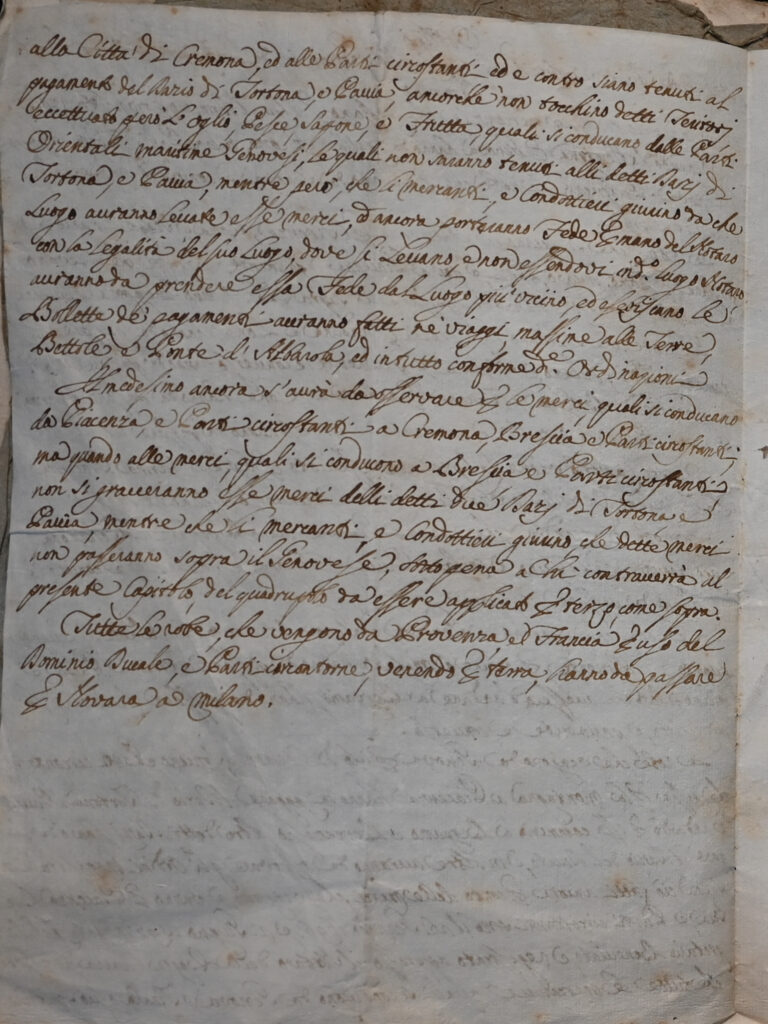 alla Città di Cremona, ed alle Parti circostanti ed e contro siano tenuti al
pagamento del Dazio di Tortona, e Pavia, ancorche non tocchino detti Territorj
eccettuato però L'oglio, Pesce, Sapone, e Frutta, quali si conducano dalle Parti
Orientali maritime Genovesi, Le quali non saranno tenuti alli detti Dazj di
Tortona, e Pavia, mentre però, che li mercanti, e Condottieri giurino da che
Luogo avranno Levate esse merci, ed ancora porteranno Fede per mano del Notaro
con la Legalità del suo Luogo, dove si Levano, e non essendovi in d.o Luogo Notaro
avranno da prendere essa Fede dal Luogo più vicino, ed esibiscano le
Bollette de pagamenti avranno fatti ne viaggi, massime alle Terre,
Bettole, e Ponte d'Albarola, ed in tutto conforme d.e Ordinazioni
Il medesimo ancora s'avrà da osservare per le merci, quali si conducano
da Piacenza, e Parti circostanti a Cremona, Brescia e Parti circostanti,
ma quando alle merci, quali si conducono a Brescia e Parti circostanti
non si graveranno esse merci delli detti due Dazj di Tortona e
Pavia, mentre che li mercanti, e Condottieri giurino che dette merci
non passeranno sopra il Genovese, sotto pena a chi contraverrà al
presente Capitolo, del quadruplo da essere applicato per terzo, come sopra.
Tutte le robe, che vengono da Provenza e Francia per uso del
Dominio Ducale, e Parti circontorne, venendo per terra, hanno da passare
per Novara a milano.